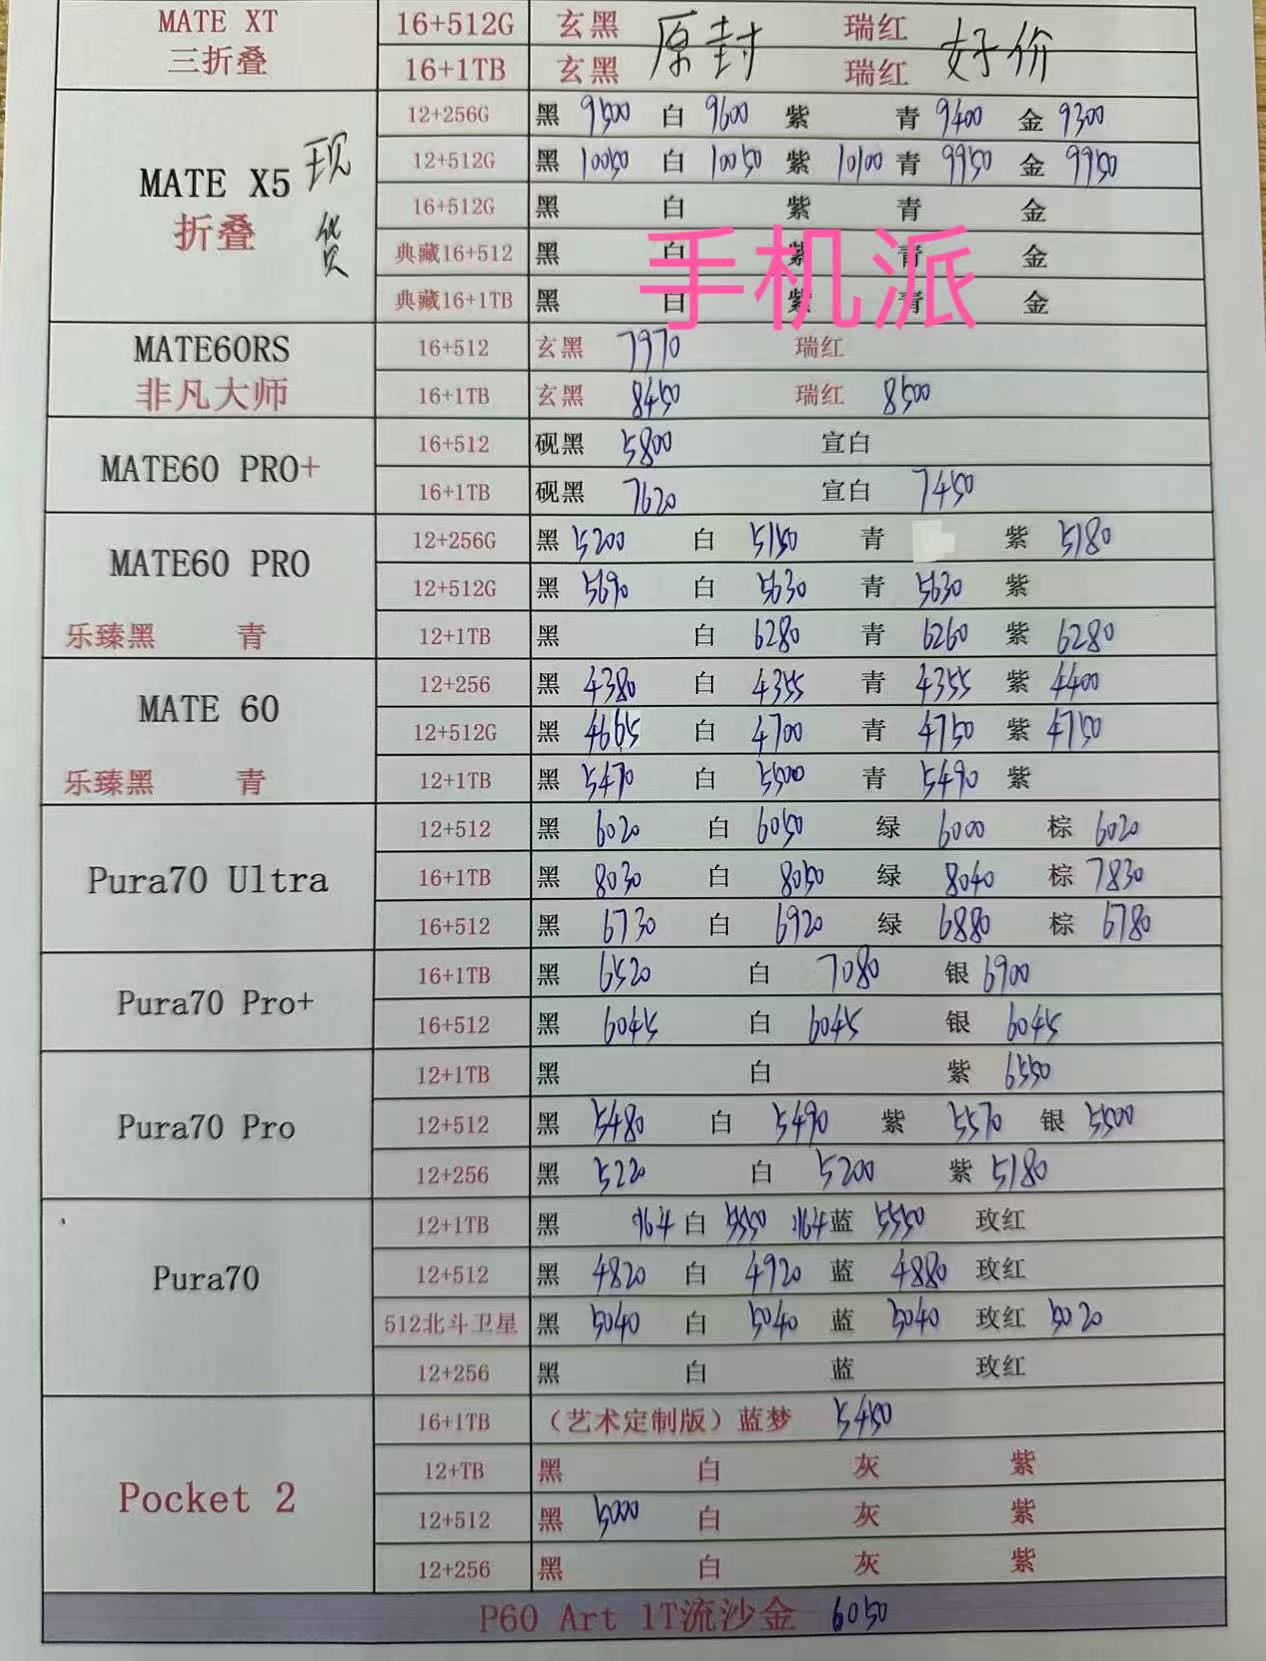 MATE XT
三折叠
16+512G 玄黑 原封 瑞红 好价
16+1TB 玄黑 瑞红
MATE X5 现货
折叠
12+256G 黑 9500 白 9600 紫 青 9400 金 9300
12+512G 黑 10050 白 10050 紫 10100 青 9950 金 9950
16+512G 黑 白 紫 青 金
典藏16+512 黑 白 紫 青 金
手机派
典藏16+1TB 黑 白 紫 青 金
MATE60RS
非凡大师
16+512 玄黑 7970 瑞红
16+1TB 玄黑 8450 瑞红 8500
MATE60 PRO+
16+512 砚黑 5800 宣白
16+1TB 砚黑 7620 宣白 7450
MATE60 PRO
乐臻黑 青
12+256G 黑 5200 白 5150 青 紫 5180
12+512G 黑 5690 白 5630 青 5630 紫
12+1TB 黑 白 6280 青 6260 紫 6280
MATE 60
乐臻黑 青
12+256 黑 4380 白 4355 青 4355 紫 4400
12+512G 黑 4665 白 4700 青 4750 紫 4750
12+1TB 黑 5470 白 5500 青 5490 紫
Pura70 Ultra
12+512 黑 6020 白 6050 绿 6000 棕 6020
16+1TB 黑 8030 白 8050 绿 8040 棕 7830
16+512 黑 6730 白 6920 绿 6880 棕 6780
Pura70 Pro+
16+1TB 黑 6520 白 7080 银 6900
16+512 黑 6045 白 6045 银 6045
Pura70 Pro
12+1TB 黑 白 紫 6550
12+512 黑 5480 白 5490 紫 5570 银 5500
12+256 黑 5220 白 5200 紫 5180
Pura70
12+1TB 黑 白 5550 蓝 5550 玫红
12+512 黑 4820 白 4920 蓝 4880 玫红
512北斗卫星 黑 5040 白 5040 蓝 5040 玫红 5020
12+256 黑 白 蓝 玫红
Pocket 2
16+1TB （艺术定制版）蓝梦 5450
12+TB 黑 白 灰 紫
12+512 黑 5000 白 灰 紫
12+256 黑 白 灰 紫
P60 Art 1T流沙金 6050